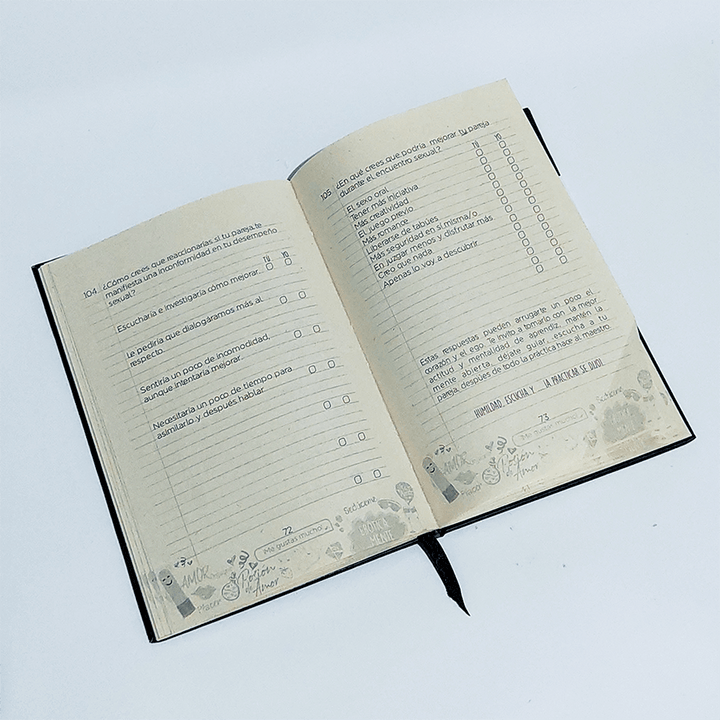 104. ¿Cómo crees que reaccionarías si tu pareja te
manifiesta una inconformidad en tu desempeño
sexual?
TÚ YO
Escucharía e investigaría cómo mejorar.
Le pediría que dialogáramos más al
respecto.
Sentiría un poco de incomodidad,
aunque intentaría mejorar.
Necesitaría un poco de tiempo para
asimilarlo y después hablar.
72
¡Me gustas mucho!
Sedúceme
EROTICA
MENTE
AMOR
Placer
Pasión
Amor
105. ¿En qué crees que podría mejorar tu pareja
durante el encuentro sexual?
TÚ YO
El sexo oral
Tener más iniciativa
Más creatividad
El juego previo
Más romance
Liberarse de tabúes
Más seguridad en sí misma/o
En juzgar menos y disfrutar más
Creo que nada
Apenas lo voy a descubrir
Estas respuestas pueden arrugarte un poco el
corazón y el ego. Te invito a tomarlo con la mejor
actitud y mentalidad de aprendiz, mantén la
mente abierta, déjate guiar, escucha a tu
pareja, después de todo la práctica hace al maestro.
HUMILDAD, ESCUCHA Y ... ¡A PRACTICAR SE DIJO!
73
¡Me gustas mucho!
Sedúceme
AMOR
Placer
Pasión
Amor